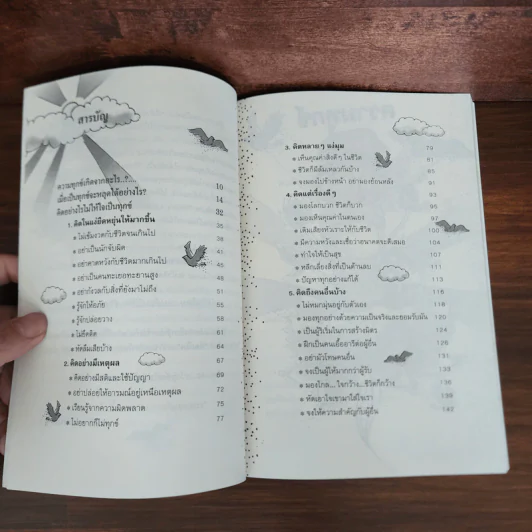 สารบัญ
ความทุกข์เกิดจากอะไร..?.. 10
เมื่อเป็นทุกข์จะหลุดได้อย่างไร? 14
คิดอย่างไรไม่ให้ใจเป็นทุกข์ 32
1. คิดในแง่ยืดหยุ่นให้มากขึ้น
ไม่เข้มงวดกับชีวิตจนเกินไป 35
อย่าเป็นนักจับผิด 41
อย่าคาดหวังกับชีวิตมากเกินไป 45
อย่าเป็นคนทะเยอทะยานสูง
อย่ากังวลกับสิ่งที่ยังมาไม่ถึง 51
รู้จักให้อภัย 55
รู้จักปล่อยวาง 58
ไม่ยึดติด 61
หัดลืมเสียบ้าง 64
2. คิดอย่างมีเหตุผล 67
คิดอย่างมีสติและใช้ปัญญา 69
อย่าปล่อยให้อารมณ์อยู่เหนือเหตุผล 72
เรียนรู้จากความผิดพลาด 75
ไม่อยากก็ไม่ทุกข์ 77
3. คิดหลายๆ แง่มุม 79
เห็นคุณค่าสิ่งดีๆ ในชีวิต 81
ชีวิตก็มีล้มเหลวกันบ้าง 85
จงมองไปข้างหน้า อย่ามองย้อนหลัง 91
4. คิดแต่เรื่องดีๆ 93
มองโลกบวก ชีวิตก็บวก 95
มองเห็นคุณค่าในตนเอง 97
เติมเสียงหัวเราะให้กับชีวิต 100
มีความหวังและเชื่อว่าอนาคตจะดีเสมอ 104
ทำใจให้เป็นสุข 106
หลีกเลี่ยงสิ่งที่เป็นด้านลบ 111
ปัญหาทุกอย่างแก้ได้ 113
5. คิดถึงคนอื่นบ้าง
ไม่หมกมุ่นอยู่กับตัวเอง 118
มองทุกอย่างด้วยความเป็นจริงและยอมรับมัน 120
เป็นผู้ริเริ่มในการสร้างมิตร 124
ฝึกเป็นคนเอื้ออารีต่อผู้อื่น
อย่ามัวโทษคนอื่น 131
จงเป็นผู้ให้มากกว่าผู้รับ 133
มองไกล... ใจกว้าง...ชีวิตก็กว้าง
หัดเอาใจเขามาใส่ใจเรา
จงให้ความสำคัญกับผู้อื่น 142